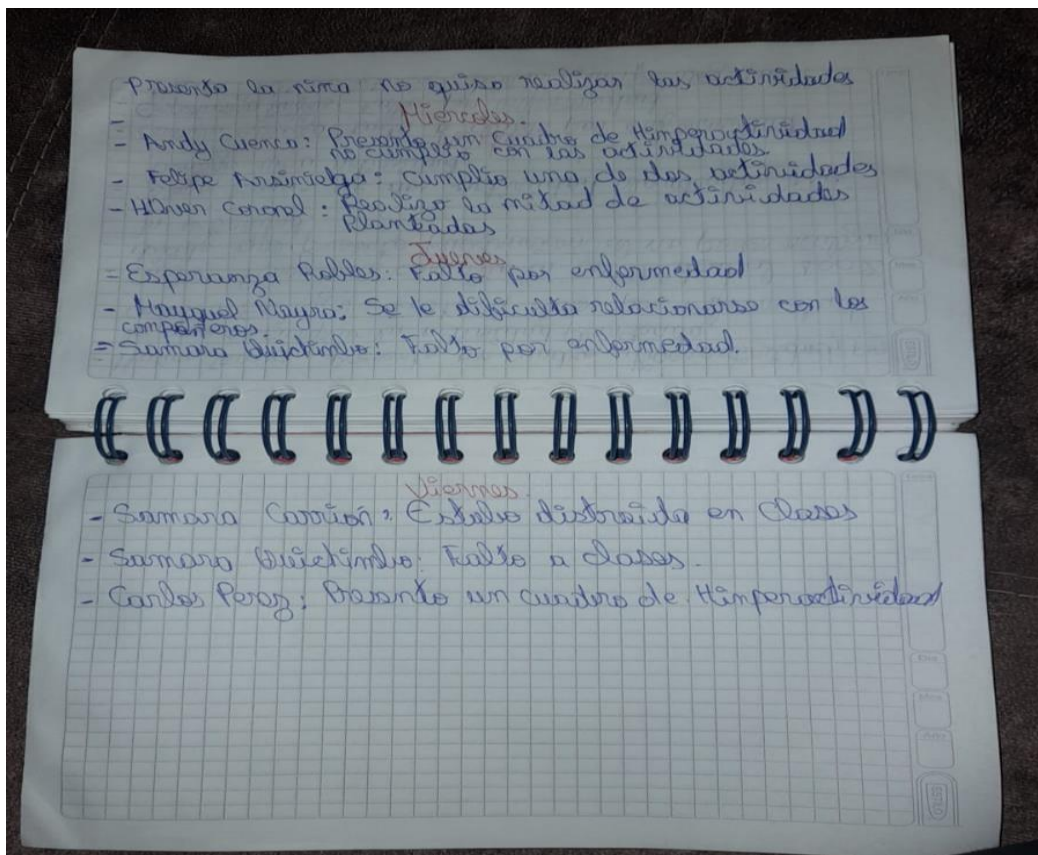 Presento la niña no quiso realizar las actividades
Miercoles.
- Andy Cuenca: Presento un Cuadro de Himperactividad
no cumplio con las actividades
- Felipe : Cumplio una de dos actividades
- Coronel : Realizo la mitad de actividades
Planteadas
Jueves
- Esperanza Robles: Falto por enfermedad
- Mayra: Se le dificulta relacionarse con los
compañeros.
- Samara Quichimbo: Falto por enfermedad.
Viernes
- Samara Carrión: Estaba distraida en Clases
- Samara Quichimbo: Falto a clases.
- Carlos Perez: Presento un cuadro de Himperactividad